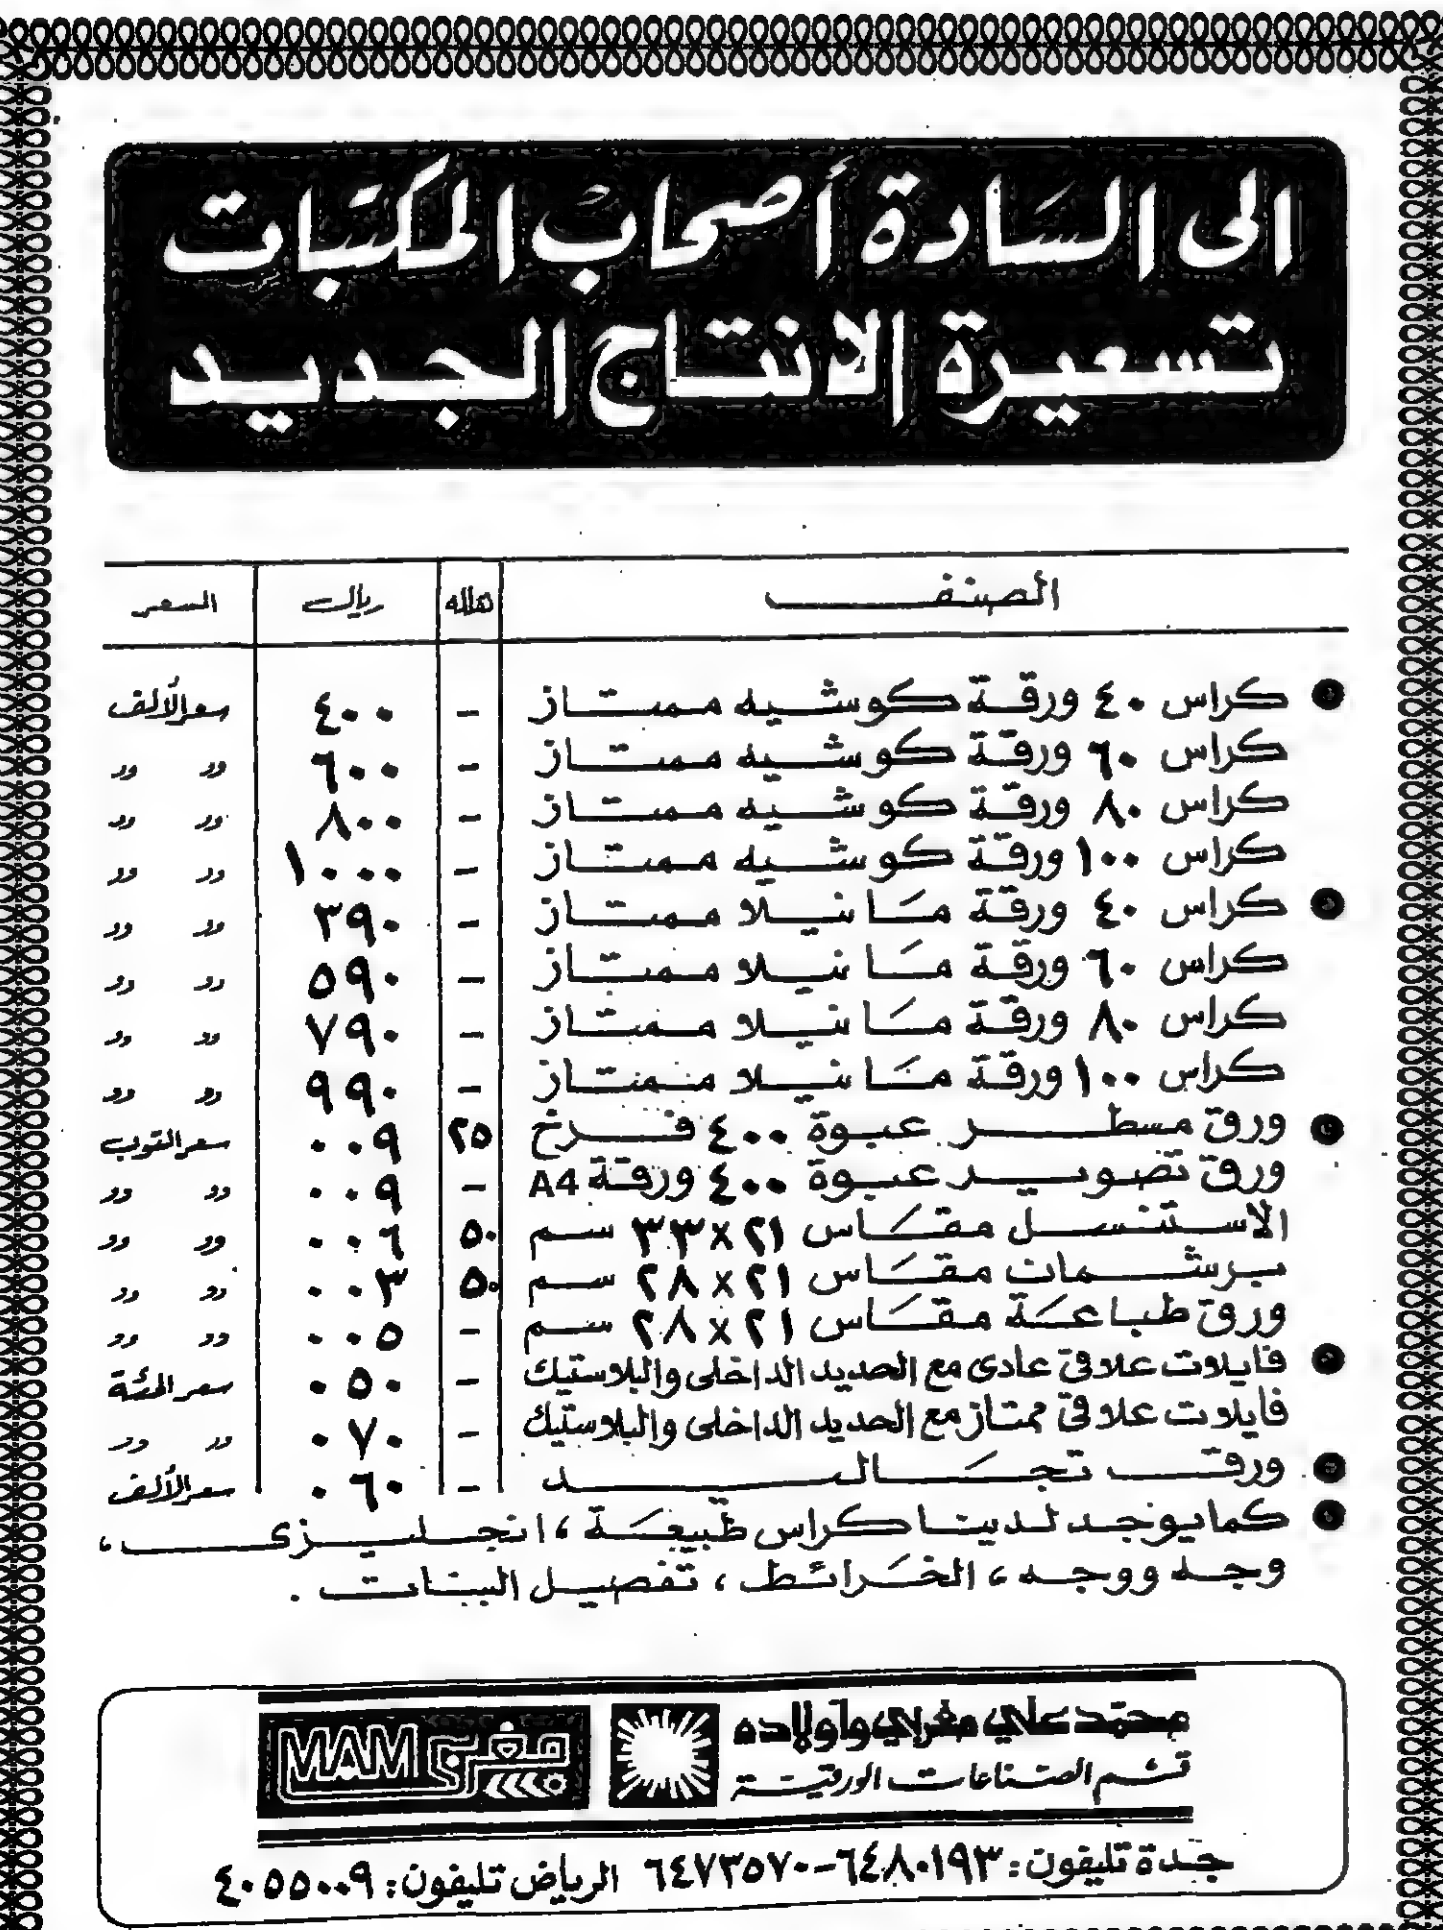 الى السادة أصحاب المكتبات
تسعيرة الانتاج الجديد
الصنف هلله ريال السعر
كراس ٤٠ ورقة كوشيه ممتاز - ٤٠٠ سعر الألف
كراس ٦٠ ورقة كوشيه ممتاز - ٦٠٠ ,, ,,
كراس ٨٠ ورقة كوشيه ممتاز - ٨٠٠ ,, ,,
كراس ١٠٠ ورقة كوشيه ممتاز - ١٠٠٠ ,, ,,
كراس ٤٠ ورقة مانيلا ممتاز - ٣٩٠ ,, ,,
كراس ٦٠ ورقة مانيلا ممتاز - ٥٩٠ ,, ,,
كراس ٨٠ ورقة مانيلا ممتاز - ٧٩٠ ,, ,,
كراس ١٠٠ ورقة مانيلا ممتاز - ٩٩٠ ,, ,,
ورق مسطر عبوة ٤٠٠ فرخ ٢٥ ٠٠٩ سعر الثوب
ورق تصوير عبوة ٤٠٠ ورقة A4 - ٠٠٩ ,, ,,
الاستنسل مقاس ٢١ × ٣٣ سم ٥٠ ٠٠٦ ,, ,,
برشمات مقاس ٢١ × ٢٨ سم ٥٠ ٠٠٣ ,, ,,
ورق طباعة مقاس ٢١ × ٢٨ سم - ٠٠٥ ,, ,,
فايلات علاقي عادى مع الحديد الداخلى والبلاستيك - ٠٥٠ سعر المئة
فايلات علاقي ممتاز مع الحديد الداخلى والبلاستيك - ٠٧٠ ,, ,,
ورق تجاليد - ٠٦٠ سعر الألف
كما يوجد لدينا كراس طبيعة ، انجليزي ،
وجه ووجه ، الخرائط ، تفصيل البنات .
محمد علي مغربي وأولاده
قسم الصناعات الورقية
مغربي MAM
جدة تليفون : ٦٤٨٠١٩٣ - ٦٤٧٣٥٧٠ الرياض تليفون : ٤٠٥٥٠٠٩